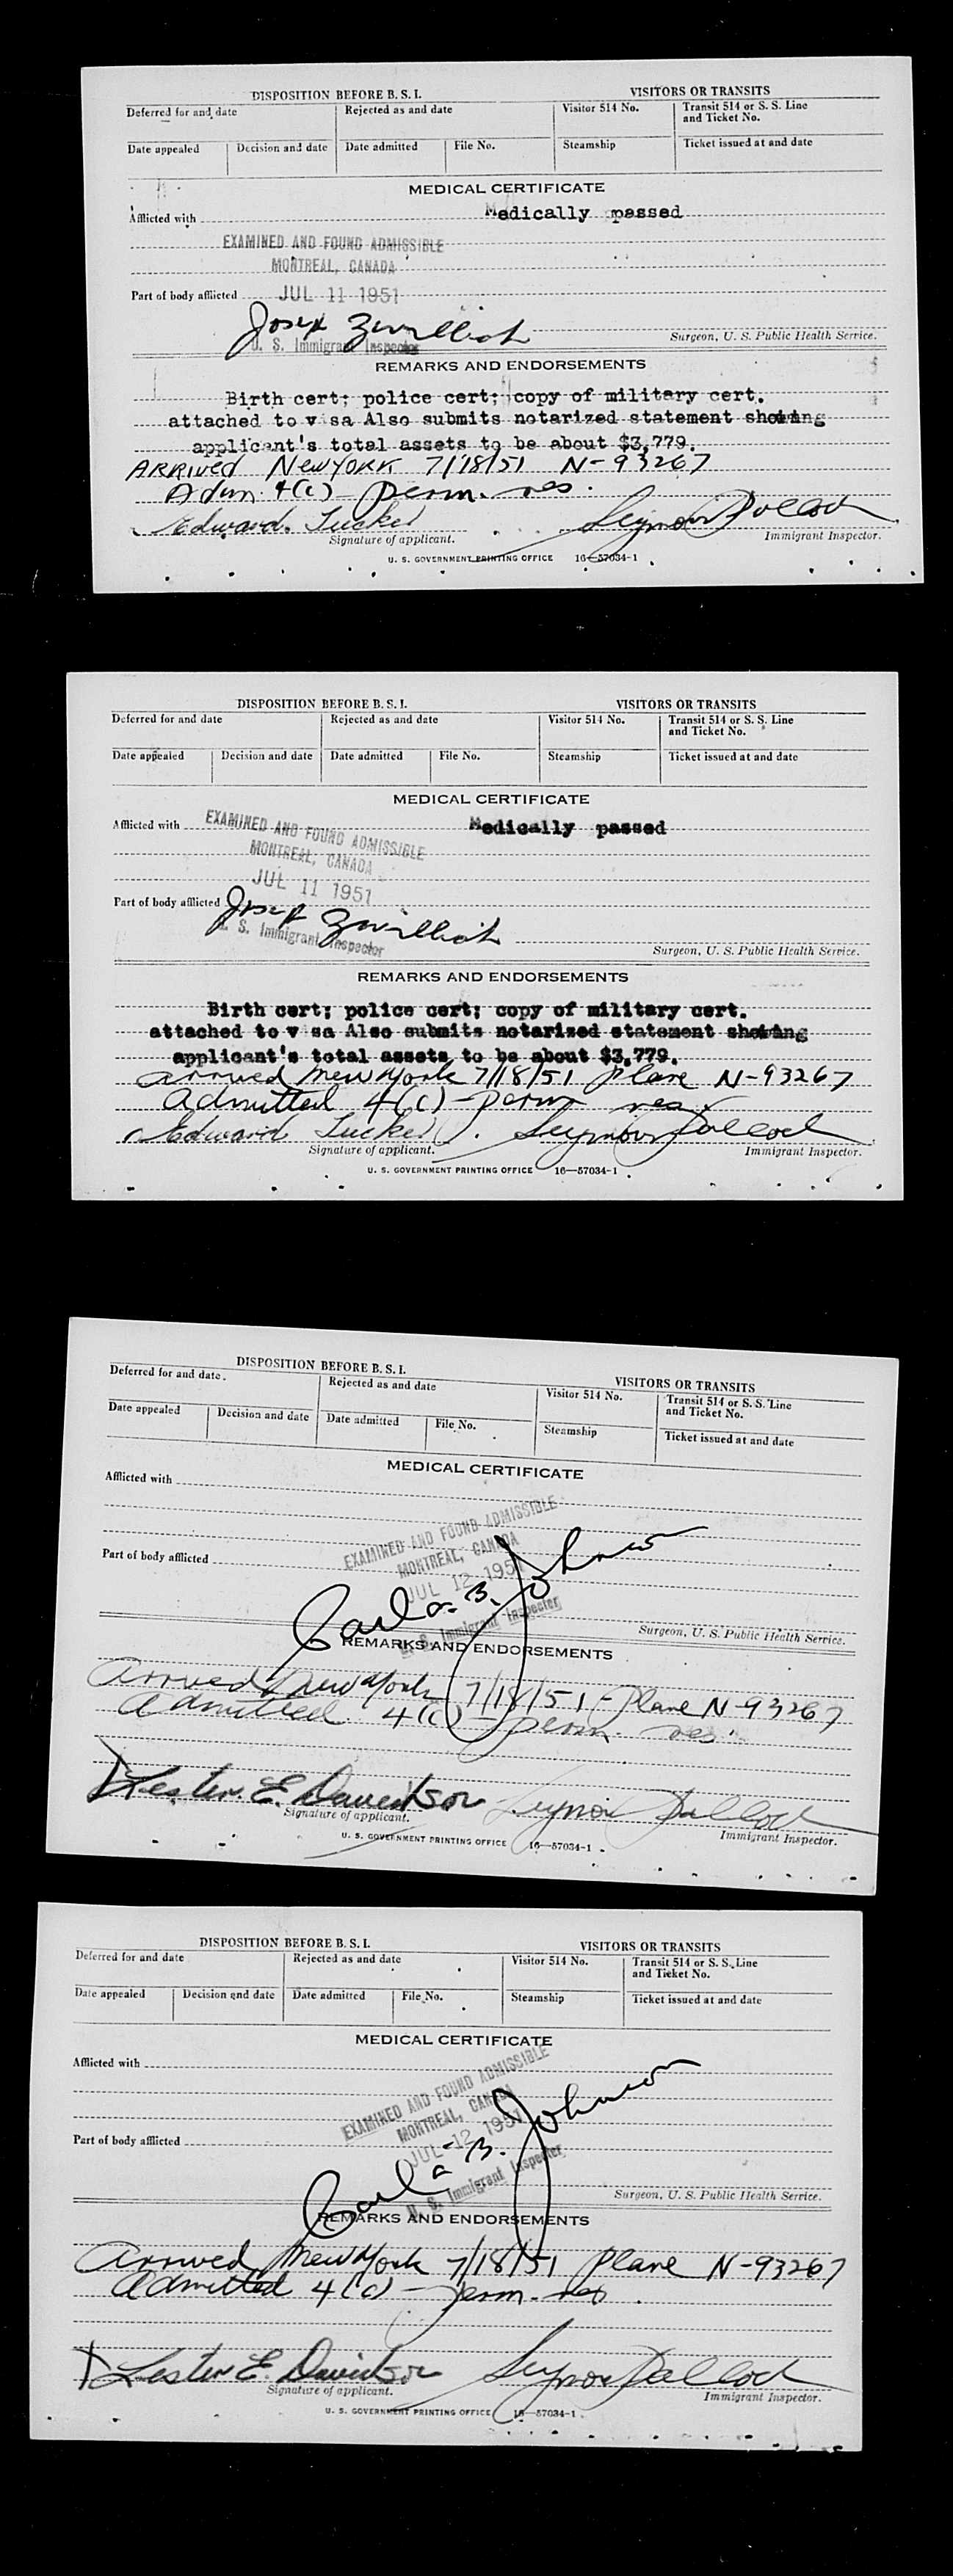 DISPOSITION BEFORE B. S. I. VISITORS OR TRANSITS
Deferred for and date Rejected as and date Visitor 514 No. Transit 514 or S. S. Line and Ticket No.
Date appealed Decision and date Date admitted File No. Steamship Ticket issued at and date
MEDICAL CERTIFICATE
Afflicted with Medically passed
EXAMINED AND FOUND ADMISSIBLE
MONTREAL, CANADA
Part of body afflicted JUL 11 1951
Joseph
U. S. Immigrant Inspector Surgeon, U. S. Public Health Service.
REMARKS AND ENDORSEMENTS
Birth cert; police cert; copy of military cert.
attached to v sa Also submits notarized statement showing
applicant's total assets to be about $3,779.
ARRIVED NEW YORK 7/18/51 N-93267
Adm. 4(c) - perm. res.
Edward Tucker Seymour Pollock
Signature of applicant. Immigrant Inspector.
U. S. GOVERNMENT PRINTING OFFICE 16—57034-1
DISPOSITION BEFORE B. S. I. VISITORS OR TRANSITS
Deferred for and date Rejected as and date Visitor 514 No. Transit 514 or S. S. Line and Ticket No.
Date appealed Decision and date Date admitted File No. Steamship Ticket issued at and date
MEDICAL CERTIFICATE
Afflicted with EXAMINED AND FOUND ADMISSIBLE Medically passed
MONTREAL, CANADA
JUL 11 1951
Part of body afflicted Joseph
U. S. Immigrant Inspector Surgeon, U. S. Public Health Service.
REMARKS AND ENDORSEMENTS
Birth cert; police cert; copy of military cert.
attached to v sa Also submits notarized statement showing
applicant's total assets to be about $3,779.
Arrived New York 7/18/51 Plane N-93267
Admitted 4(c) - perm res.
Edward Tucker Seymour Pollock
Signature of applicant. Immigrant Inspector.
U. S. GOVERNMENT PRINTING OFFICE 16—57034-1
DISPOSITION BEFORE B. S. I. VISITORS OR TRANSITS
Deferred for and date Rejected as and date Visitor 514 No. Transit 514 or S. S. Line and Ticket No.
Date appealed Decision and date Date admitted File No. Steamship Ticket issued at and date
MEDICAL CERTIFICATE
Afflicted with
EXAMINED AND FOUND ADMISSIBLE
MONTREAL, CANADA
Part of body afflicted JUL 12 1951
Carl B. Johnson
U. S. Immigrant Inspector Surgeon, U. S. Public Health Service.
REMARKS AND ENDORSEMENTS
Arrived New York 7/18/51 - Plane N-93267
Admitted 4(c) - perm. res.
Lester E. Davidson Seymour Pollock
Signature of applicant. Immigrant Inspector.
U. S. GOVERNMENT PRINTING OFFICE 16—57034-1
DISPOSITION BEFORE B. S. I. VISITORS OR TRANSITS
Deferred for and date Rejected as and date Visitor 514 No. Transit 514 or S. S. Line and Ticket No.
Date appealed Decision and date Date admitted File No. Steamship Ticket issued at and date
MEDICAL CERTIFICATE
Afflicted with
EXAMINED AND FOUND ADMISSIBLE
MONTREAL, CANADA
Part of body afflicted JUL 12 1951
Carl B. Johnson
U. S. Immigrant Inspector Surgeon, U. S. Public Health Service.
REMARKS AND ENDORSEMENTS
Arrived New York 7/18/51 Plane N-93267
Admitted 4(c) - perm. res.
Lester E. Davidson Seymour Pollock
Signature of applicant. Immigrant Inspector.
U. S. GOVERNMENT PRINTING OFFICE 16—57034-1